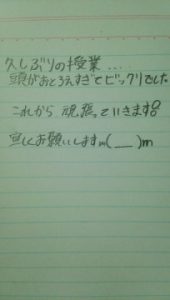 久しぶりの授業...
頭がおとろえすぎてビックリでした
これから頑張っていきます!
宜しくお願いしますm(__)m